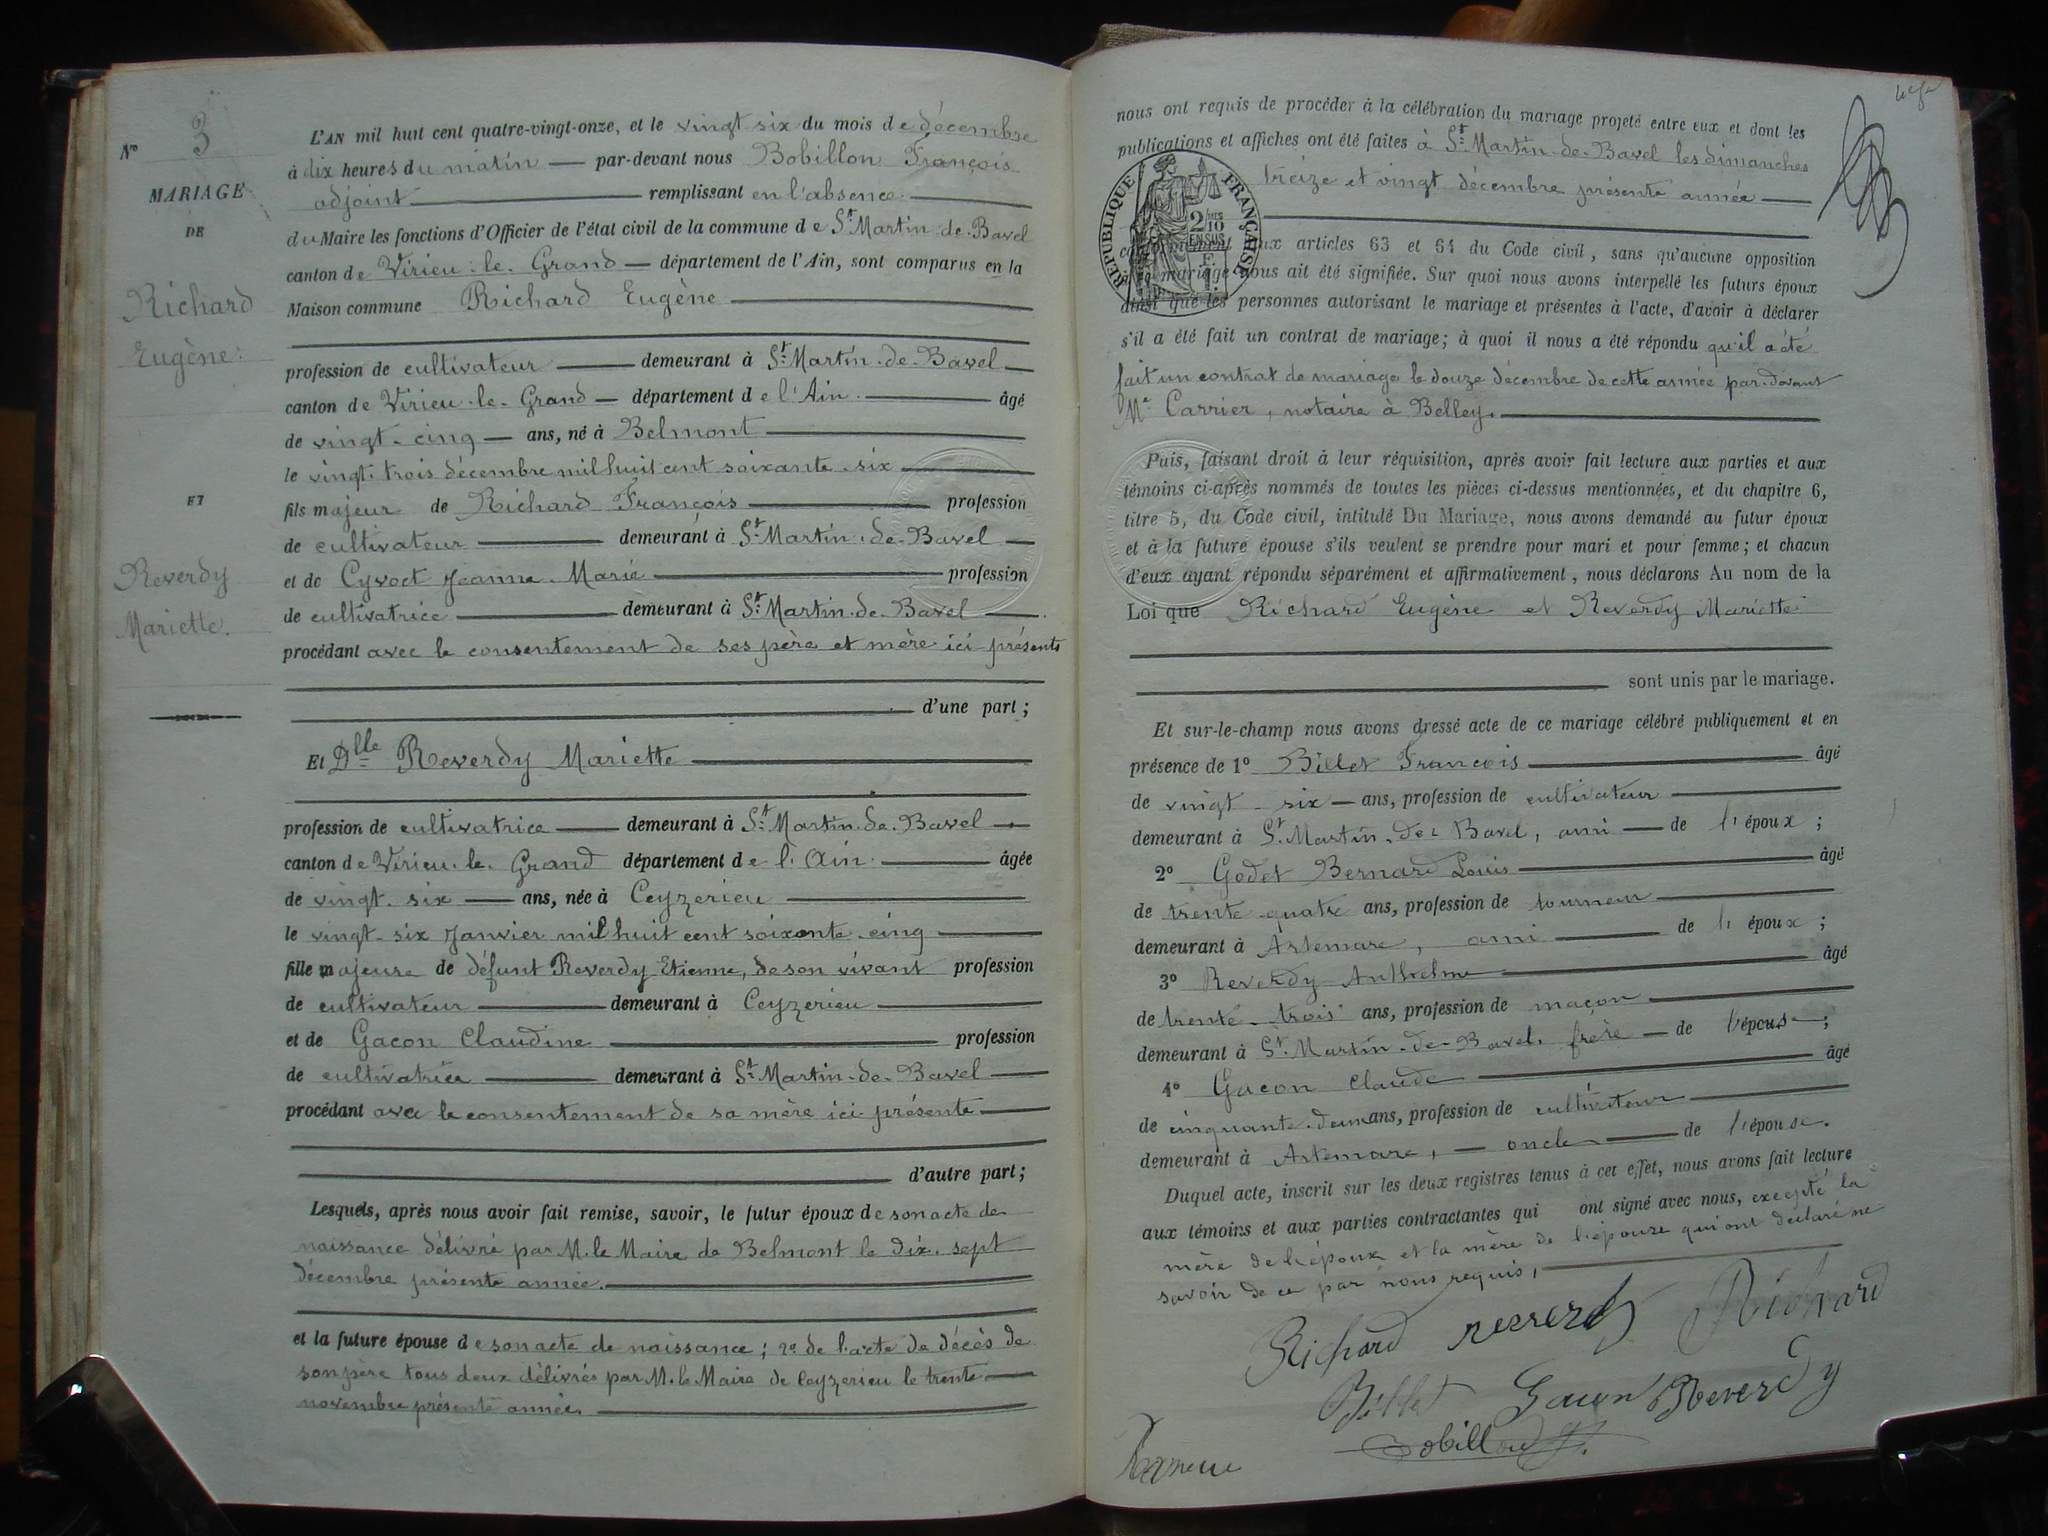 N° 3
MARIAGE
DE
Richard
Eugène
ET
Reverdy
Mariette.
L'AN mil huit cent quatre-vingt-onze, et le vingt six du mois de décembre
à dix heures du matin par-devant nous Bobillon François
adjoint remplissant en l'absence
du Maire les fonctions d'Officier de l'état civil de la commune de St Martin-de-Bavel
canton de Virieu-le-Grand département de l'Ain, sont comparus en la
Maison commune Richard Eugène
profession de cultivateur demeurant à St Martin-de-Bavel
canton de Virieu-le-Grand département de l'Ain âgé
de vingt-cinq ans, né à Belmont
le vingt-trois décembre mil huit cent soixante-six
fils majeur de Richard François profession
de cultivateur demeurant à St Martin-de-Bavel
et de Cyvoct Jeanne Marie profession
de cultivatrice demeurant à St Martin-de-Bavel
procédant avec le consentement de ses père et mère ici présents
d'une part ;
Et Dlle Reverdy Mariette
profession de cultivatrice demeurant à St Martin-de-Bavel
canton de Virieu-le-Grand département de l'Ain âgée
de vingt-six ans, née à Ceyzerieu
le vingt-six Janvier mil huit cent soixante-cinq
fille majeure de défunt Reverdy Etienne, de son vivant profession
de cultivateur demeurant à Ceyzerieu
et de Gacon Claudine profession
de cultivatrice demeurant à St Martin-de-Bavel
procédant avec le consentement de sa mère ici présente
d'autre part ;
Lesquels, après nous avoir fait remise, savoir, le futur époux de son acte de
naissance délivré par M. le Maire de Belmont le dix-sept
décembre présente année.
et la future épouse de son acte de naissance ; 2° de l'acte de décès de
son père tous deux délivrés par M. le Maire de Ceyzerieu le trente
novembre présente année.
nous ont requis de procéder à la célébration du mariage projeté entre eux et dont les
publications et affiches ont été faites à St Martin-de-Bavel les dimanches
treize et vingt décembre présente année
RÉPUBLIQUE FRANÇAISE
2/10 EN SUS
conformément aux articles 63 et 64 du Code civil, sans qu'aucune opposition
à ce mariage nous ait été signifiée. Sur quoi nous avons interpellé les futurs époux
ainsi que les personnes autorisant le mariage et présentes à l'acte, d'avoir à déclarer
s'il a été fait un contrat de mariage ; à quoi il nous a été répondu qu'il a été
fait un contrat de mariage le douze décembre de cette année par-devant
Me Carrier, notaire à Belley.
Puis, faisant droit à leur réquisition, après avoir fait lecture aux parties et aux
témoins ci-après nommés de toutes les pièces ci-dessus mentionnées, et du chapitre 6,
titre 5, du Code civil, intitulé Du Mariage, nous avons demandé au futur époux
et à la future épouse s'ils veulent se prendre pour mari et pour femme ; et chacun
d'eux ayant répondu séparément et affirmativement, nous déclarons Au nom de la
Loi que Richard Eugène et Reverdy Mariette
sont unis par le mariage.
Et sur-le-champ nous avons dressé acte de ce mariage célébré publiquement et en
présence de 1° Billet François âgé
de vingt-six ans, profession de cultivateur
demeurant à St Martin-de-Bavel, ami de l'époux ;
2° Godet Bernard Louis âgé
de trente-quatre ans, profession de tourneur
demeurant à Artemare, ami de l'époux ;
3° Reverdy Anthelme âgé
de trente-trois ans, profession de maçon
demeurant à St Martin-de-Bavel, frère de l'épouse ;
4° Gacon Claude âgé
de cinquante-deux ans, profession de cultivateur
demeurant à Artemare, oncle de l'épouse.
Duquel acte, inscrit sur les deux registres tenus à cet effet, nous avons fait lecture
aux témoins et aux parties contractantes qui ont signé avec nous, excepté la
mère de l'époux et la mère de l'épouse qui ont déclaré ne
savoir de ce par nous requis,
Richard reverdy Richard
Billet Gacon Reverdy
Bobillon F.